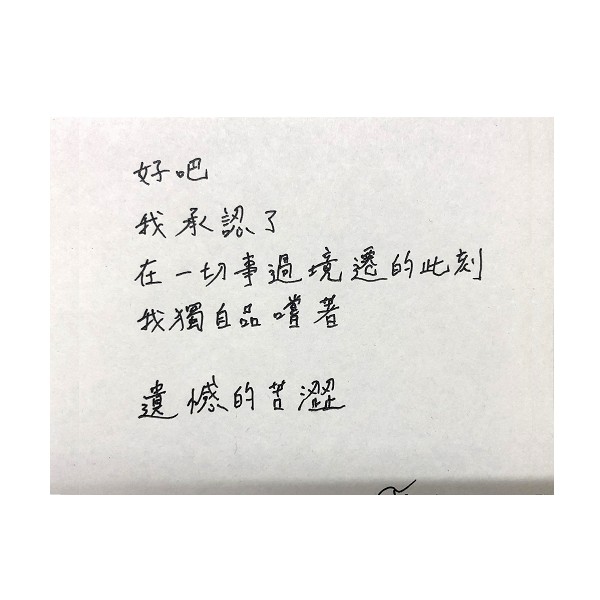 好吧
我承認了
在一切事過境遷的此刻
我獨自品嚐著
遺憾的苦澀